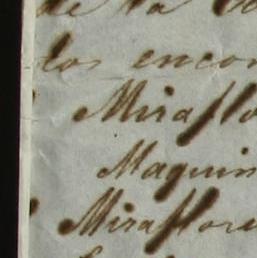 de la
los encon
Miraflo
Maquin
Miraflore